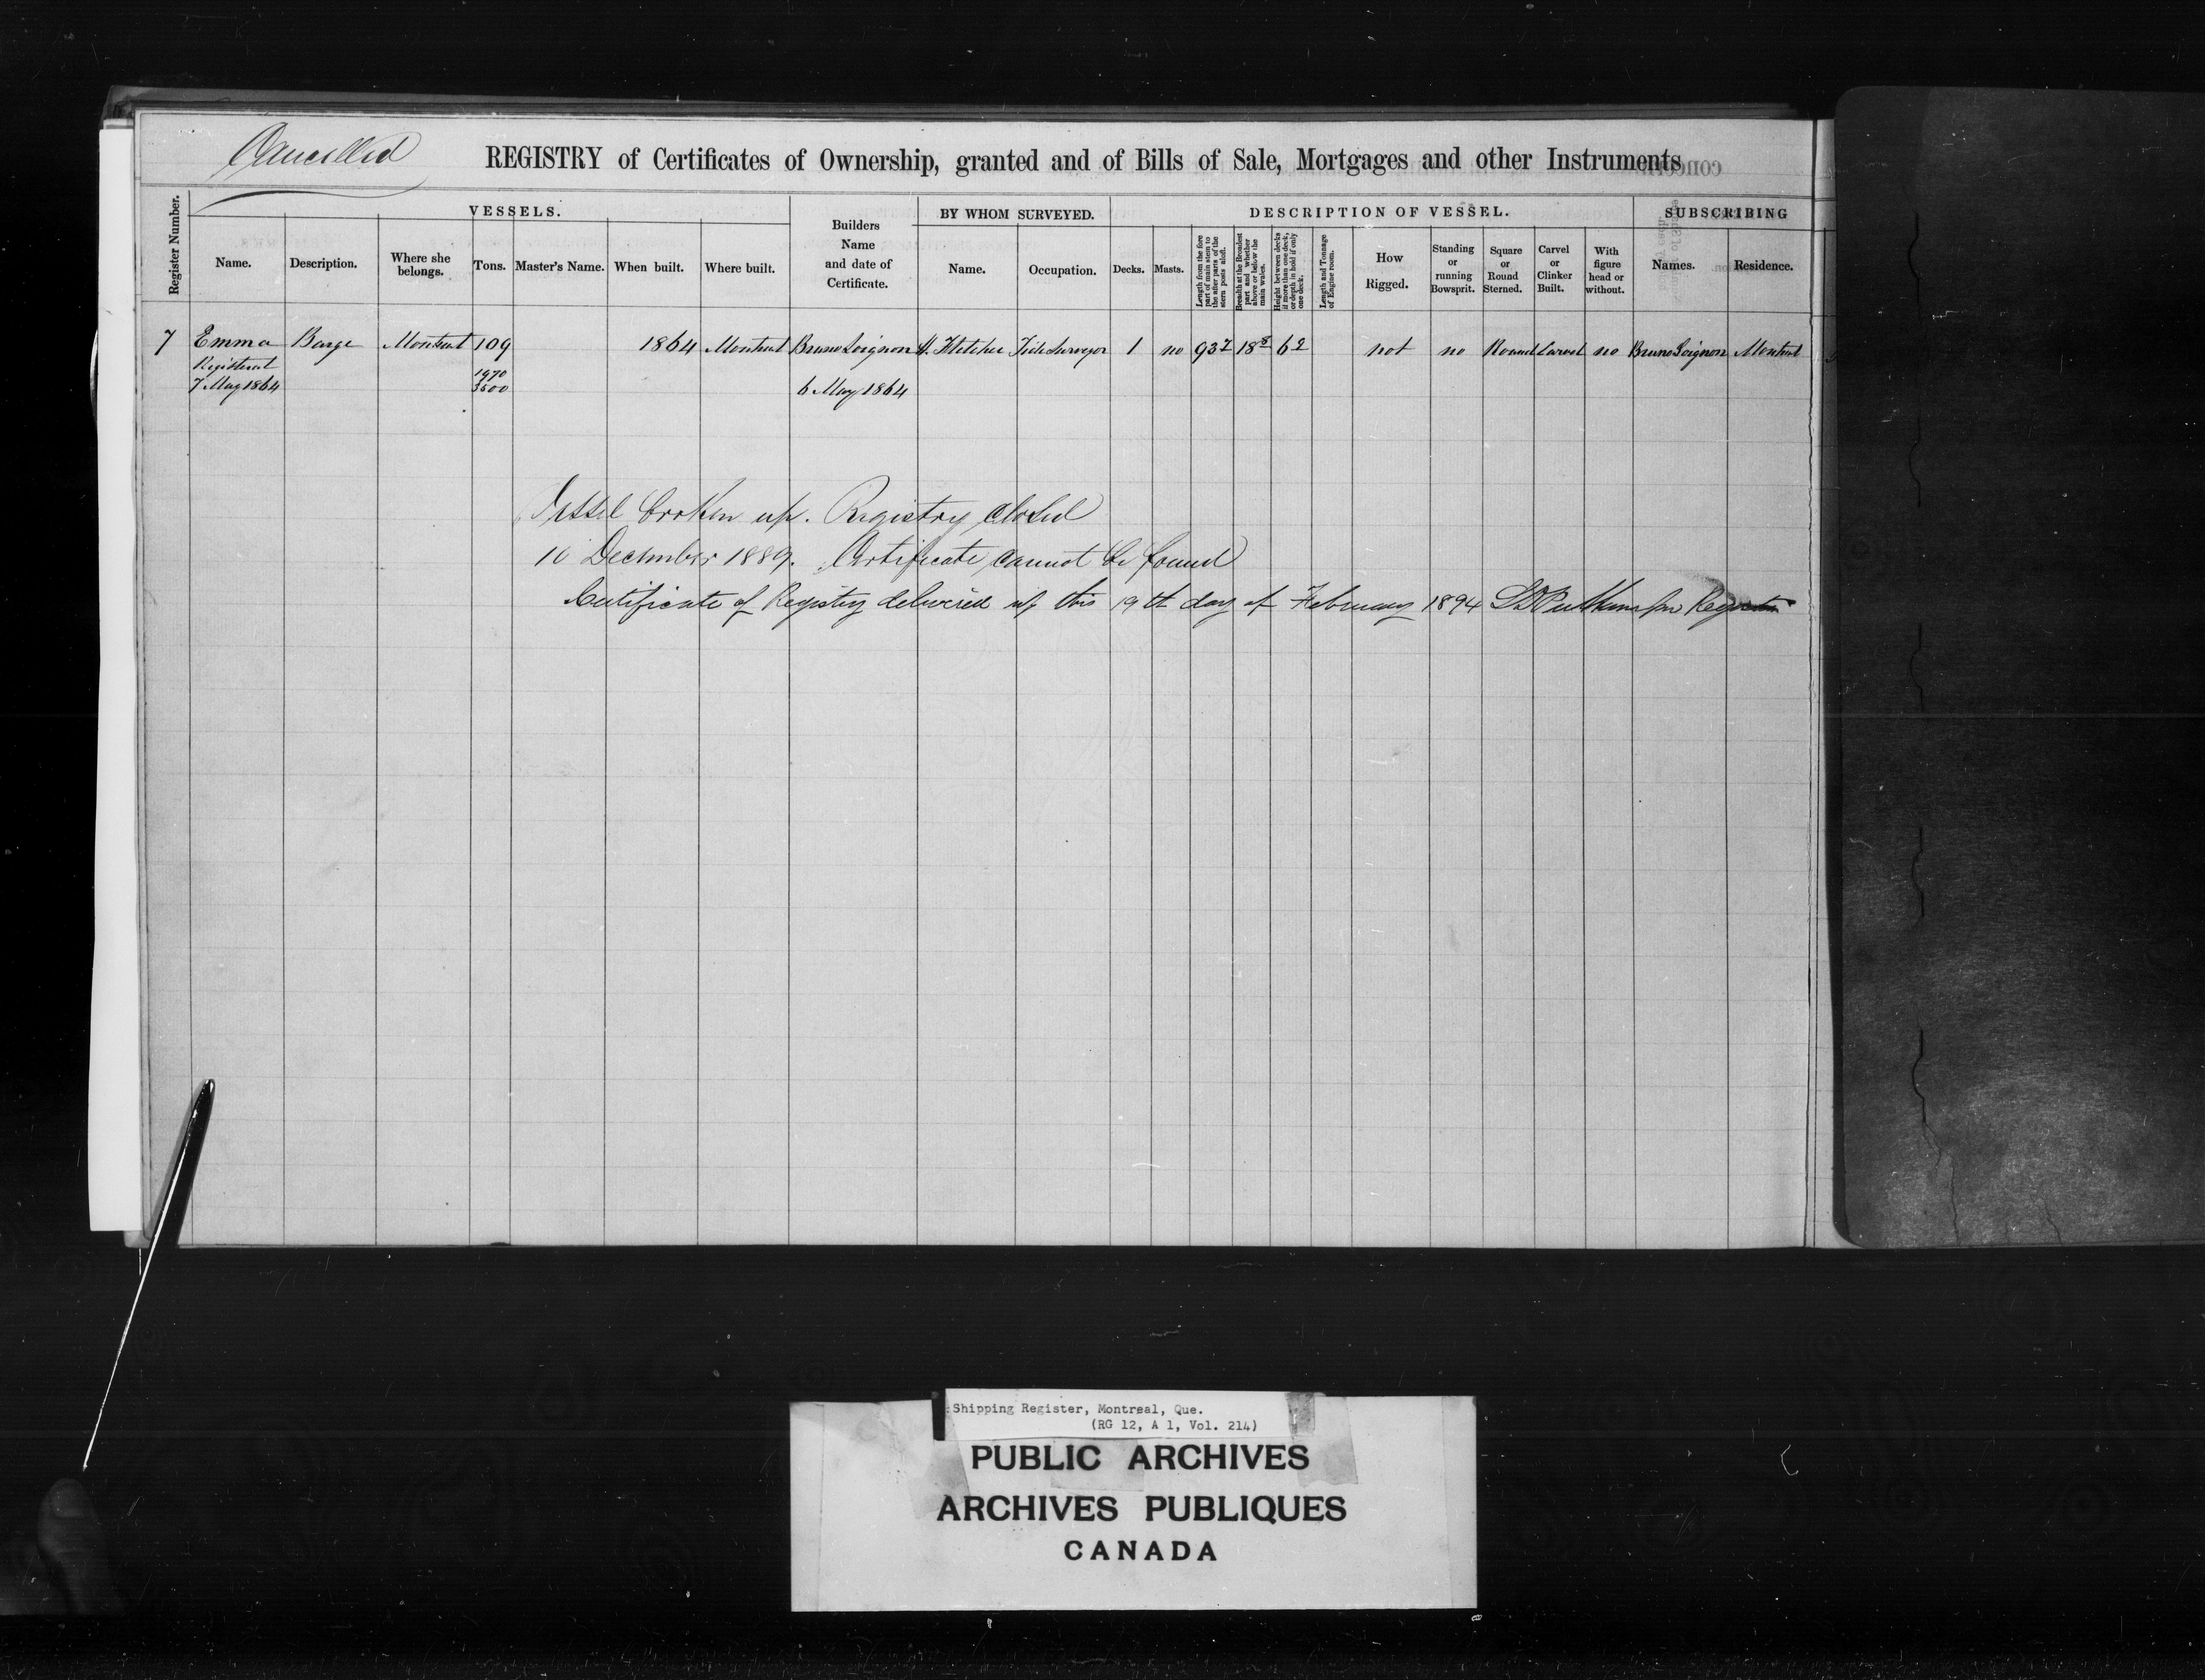 Cancelled
REGISTRY of Certificates of Ownership, granted and of Bills of Sale, Mortgages and other Instruments
Register Number.
VESSELS.
Name.
Description.
Where she belongs.
Tons.
Master's Name.
When built.
Where built.
Builders
Name
and date of
Certificate.
BY WHOM SURVEYED.
Name.
Occupation.
DESCRIPTION OF VESSEL.
Decks.
Masts.
Length from the fore part of main stem to the after parts of the stern posts aloft.
Breadth at the Broadest part and whether above or below the main wales.
Height between decks if more than one deck, or depth in hold if only one deck.
Length and Tonnage of Engine room.
How
Rigged.
Standing
or
running
Bowsprit.
Square
or
Round
Sterned.
Carvel
or
Clinker
Built.
With
figure
head or
without.
SUBSCRIBING
Names.
Residence.
7 Emma Barge Montreal 109 1864 Montreal Bruno Soignon Fletcher Tide Surveyor 1 no 93 7 18 8 6 2 not no Round Carvel no Bruno Soignon Montreal
Registered 1970
7 May 1864 3500 6 May 1864
Vessel broken up. Registry closed
10 December 1889. Certificate cannot be found
Certificate of Registry delivered up this 19th day of February 1894 Registrar
Shipping Register, Montreal, Que.
(RG 12, A 1, Vol. 214)
PUBLIC ARCHIVES
ARCHIVES PUBLIQUES
CANADA